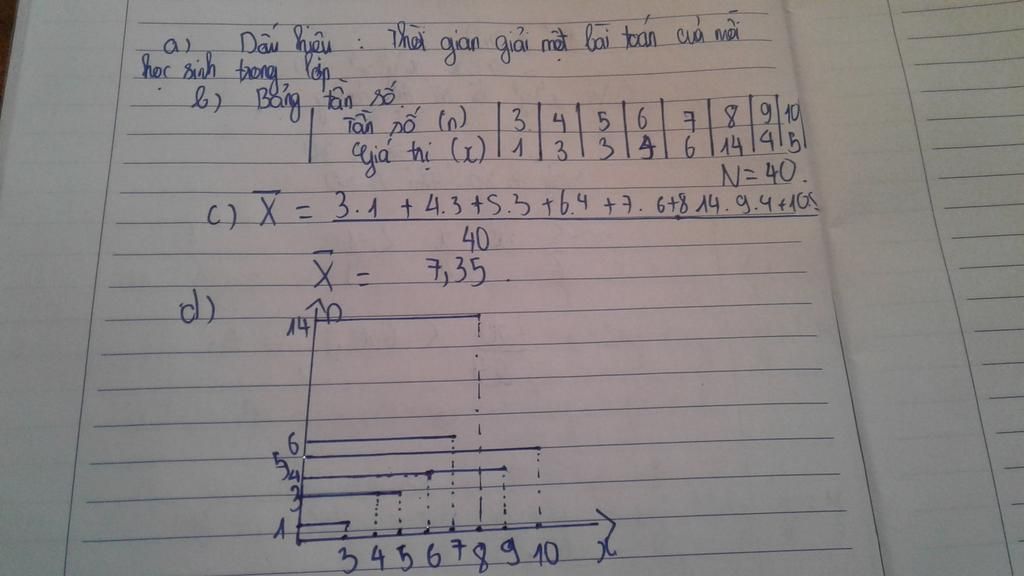 a) Dấu hiệu : Thời gian giải một bài toán của mỗi
học sinh trong lớp
b) Bảng tần số.
Tần số (n) | 3 | 4 | 5 | 6 | 7 | 8 | 9 | 10
Giá trị (x) | 1 | 3 | 3 | 4 | 6 | 14 | 4 | 5
N = 40.
c) X̄ = 3.1 + 4.3 + 5.3 + 6.4 + 7.6 + 8 14. 9.4 + 10.5
40
X̄ = 7,35.
d)
n
14
6
5
4
3
1
3 4 5 6 7 8 9 10 x